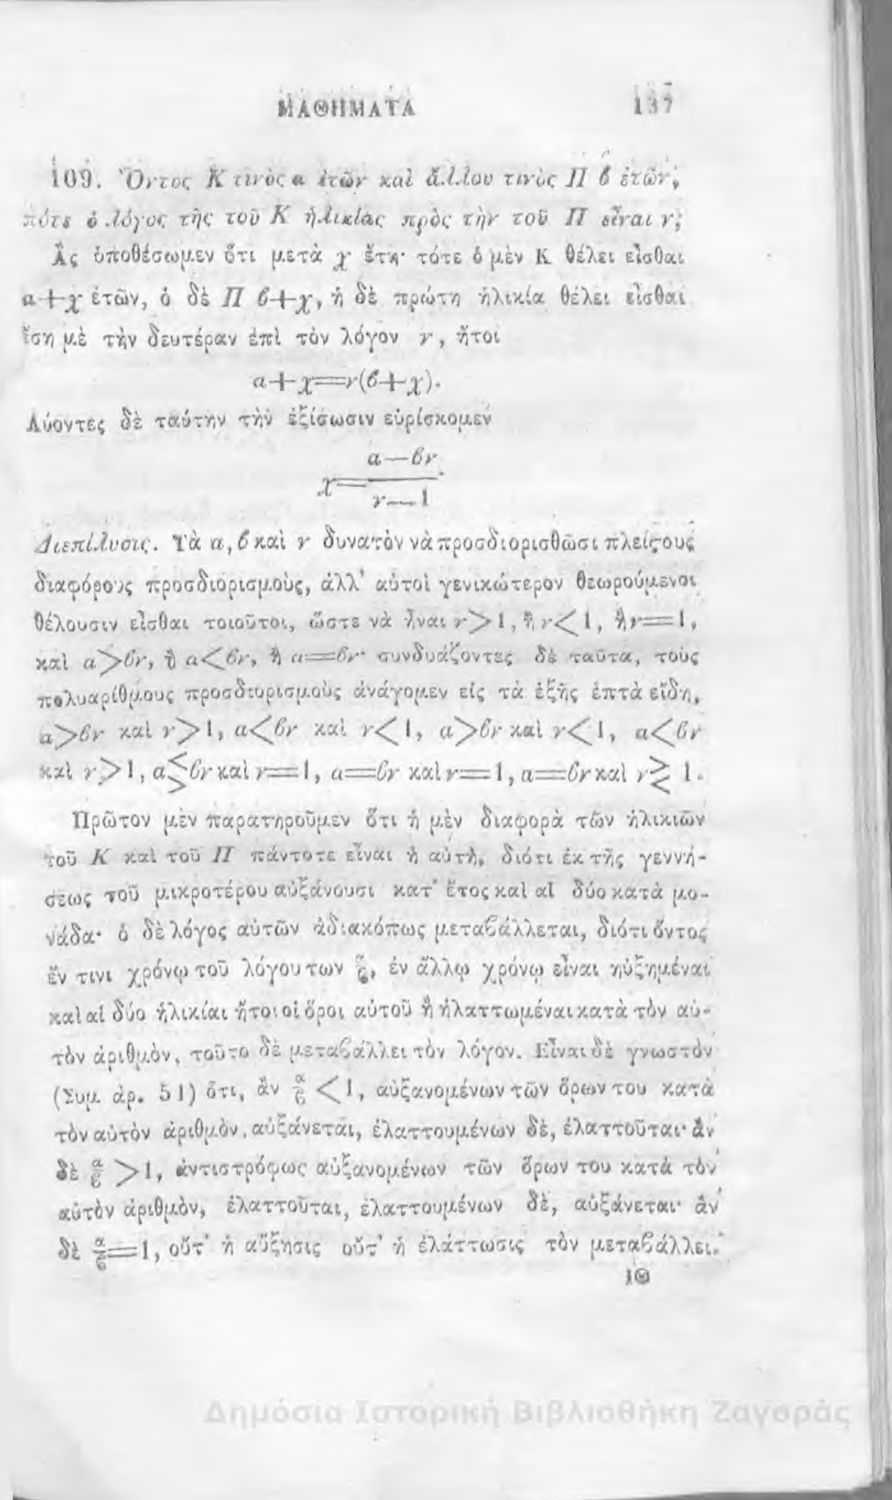 ΜΑΘΗΜΑΤΑ 137
109. Ὄντος Κ τινὸς α ἐτῶν καὶ ἄλλου τινὸς Π ϐ ἐτῶν,
πότε ὁ λόγος τῆς τοῦ Κ ἡλικίας πρὸς τὴν τοῦ Π εἶναι ν;
Ἂς ὑποθέσωμεν ὅτι μετὰ χ ἔτη· τότε ὁ μὲν Κ θέλει εἶσθαι
α+χ ἐτῶν, ὁ δὲ Π ϐ+χ, ἡ δὲ πρώτη ἡλικία θέλει εἶσθαι
ἴση μὲ τὴν δευτέραν ἐπὶ τὸν λόγον ν, ἤτοι
α+χ=ν(ϐ+χ).
Λύοντες δὲ ταύτην τὴν ἐξίσωσιν εὑρίσκομεν
α—ϐν
χ=————.
ν—1
Διεπίλυσις. Τὰ α, ϐ καὶ ν δυνατὸν νὰ προσδιορισθῶσι πλείϛους
διαφόρους προσδιορισμοὺς, ἀλλ' αὐτοὶ γενικώτερον θεωρούμενοι
θέλουσιν εἶσθαι τοιοῦτοι, ὥστε νὰ ἦναι ν>1, ἢ ν<1, ἢ ν=1,
καὶ α>ϐν, ἢ α<ϐν, ἢ α=ϐν· συνδυάζοντες δὲ ταῦτα, τοὺς
πολυαρίθμους προσδιορισμοὺς ἀνάγομεν εἰς τὰ ἑξῆς ἑπτὰ εἴδη,
α>ϐν καὶ ν>1, α<ϐν καὶ ν<1, α>ϐν καὶ ν<1, α<ϐν
καὶ ν>1, α≶ϐν καὶ ν=1, α=ϐν καὶ ν=1, α=ϐν καὶ ν≷1.
Πρῶτον μὲν παρατηροῦμεν ὅτι ἡ μὲν διαφορὰ τῶν ἡλικιῶν
τοῦ Κ καὶ τοῦ Π πάντοτε εἶναι ἡ αὐτὴ, διότι ἐκ τῆς γεννή-
σεως τοῦ μικροτέρου αὐξάνουσι κατ' ἔτος καὶ αἱ δύο κατὰ μο-
νάδα· ὁ δὲ λόγος αὐτῶν ἀδιακόπως μεταϐάλλεται, διότι ὄντος
ἔν τινι χρόνῳ τοῦ λόγου των α/ϐ, ἐν ἄλλῳ χρόνῳ εἶναι ηὐξημέναι
καὶ αἱ δύο ἡλικίαι ἤτοι οἱ ὅροι αὐτοῦ ἢ ἠλαττωμέναι κατὰ τὸν αὐ-
τὸν ἀριθμὸν, τοῦτο δὲ μεταϐάλλει τὸν λόγον. Εἶναι δὲ γνωστὸν
(Συμ. ἀρ. 51) ὅτι, ἂν α/ϐ <1, αὐξανομένων τῶν ὅρων του κατὰ
τὸν αὐτὸν ἀριθμὸν, αὐξάνεται, ἐλαττουμένων δὲ, ἐλαττοῦται· ἂν
δὲ α/ϐ >1, ἀντιστρόφως αὐξανομένων τῶν ὅρων του κατὰ τὸν
αὐτὸν ἀριθμὸν, ἐλαττοῦται, ἐλαττουμένων δὲ, αὐξάνεται· ἂν
δὲ α/ϐ=1, οὔτ' ἡ αὔξησις οὔτ' ἡ ἐλάττωσις τὸν μεταϐάλλει.
Δημόσια Ιστορική Βιβλιοθήκη Ζαγοράς